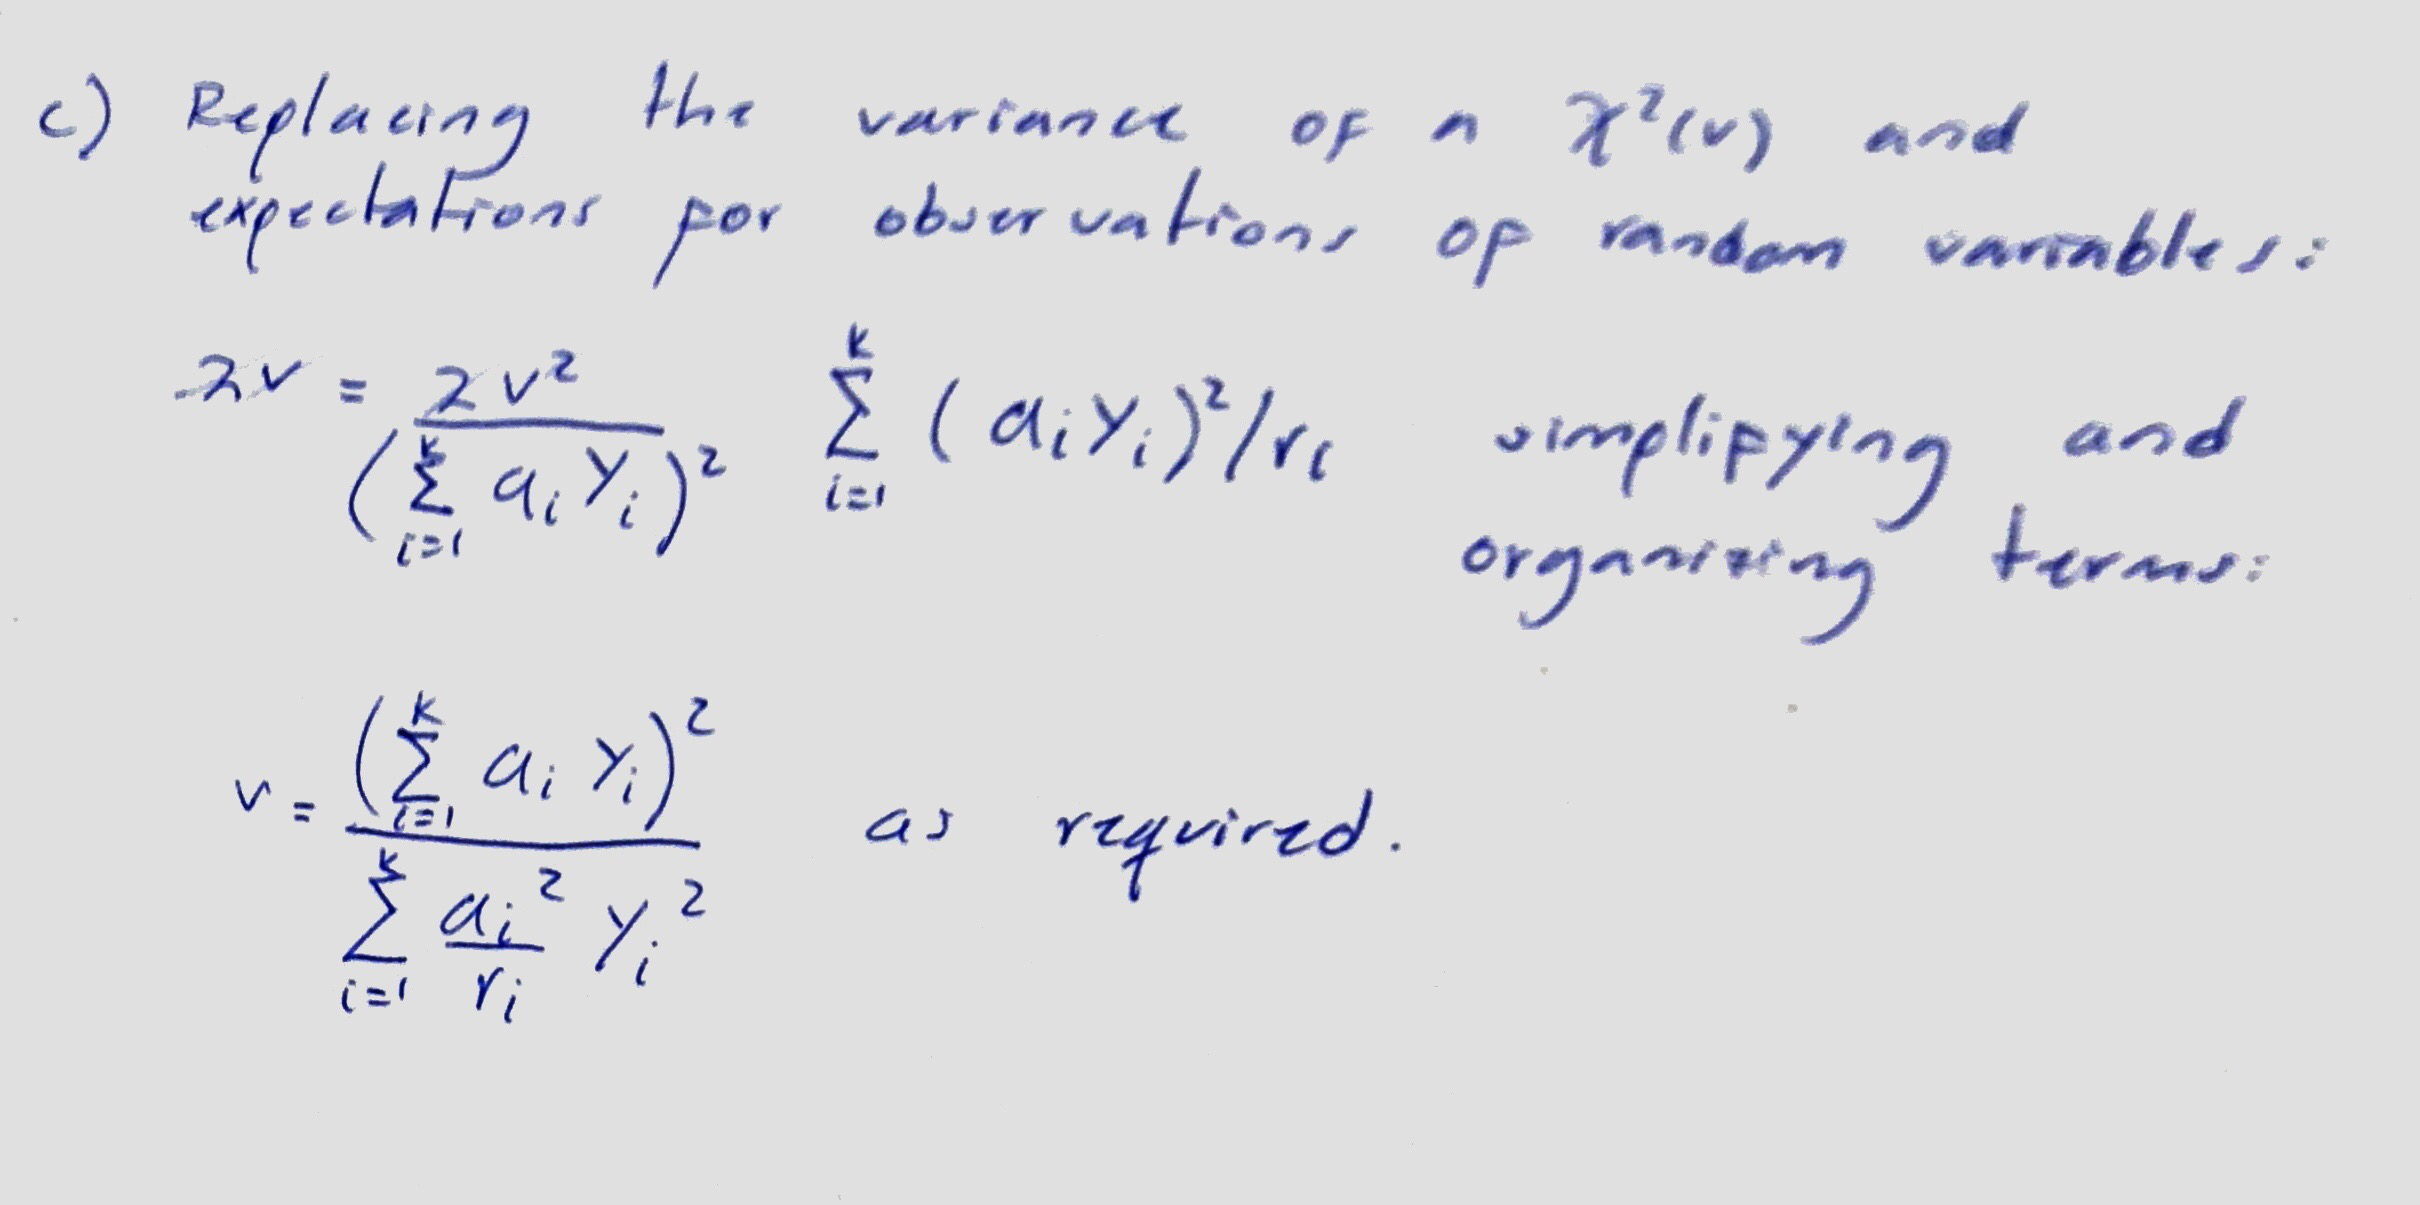 c) Replacing the variance of a χ²(v) and
expectations for observations of random variables:
2v = 2v² / (∑_{i=1}^{k} a_i Y_i)² ∑_{i=1}^{k} (a_i Y_i)²/r_i simplifying and
organizing terms:
v = (∑_{i=1}^{k} a_i Y_i)² / ∑_{i=1}^{k} a_i²/r_i Y_i² as required.